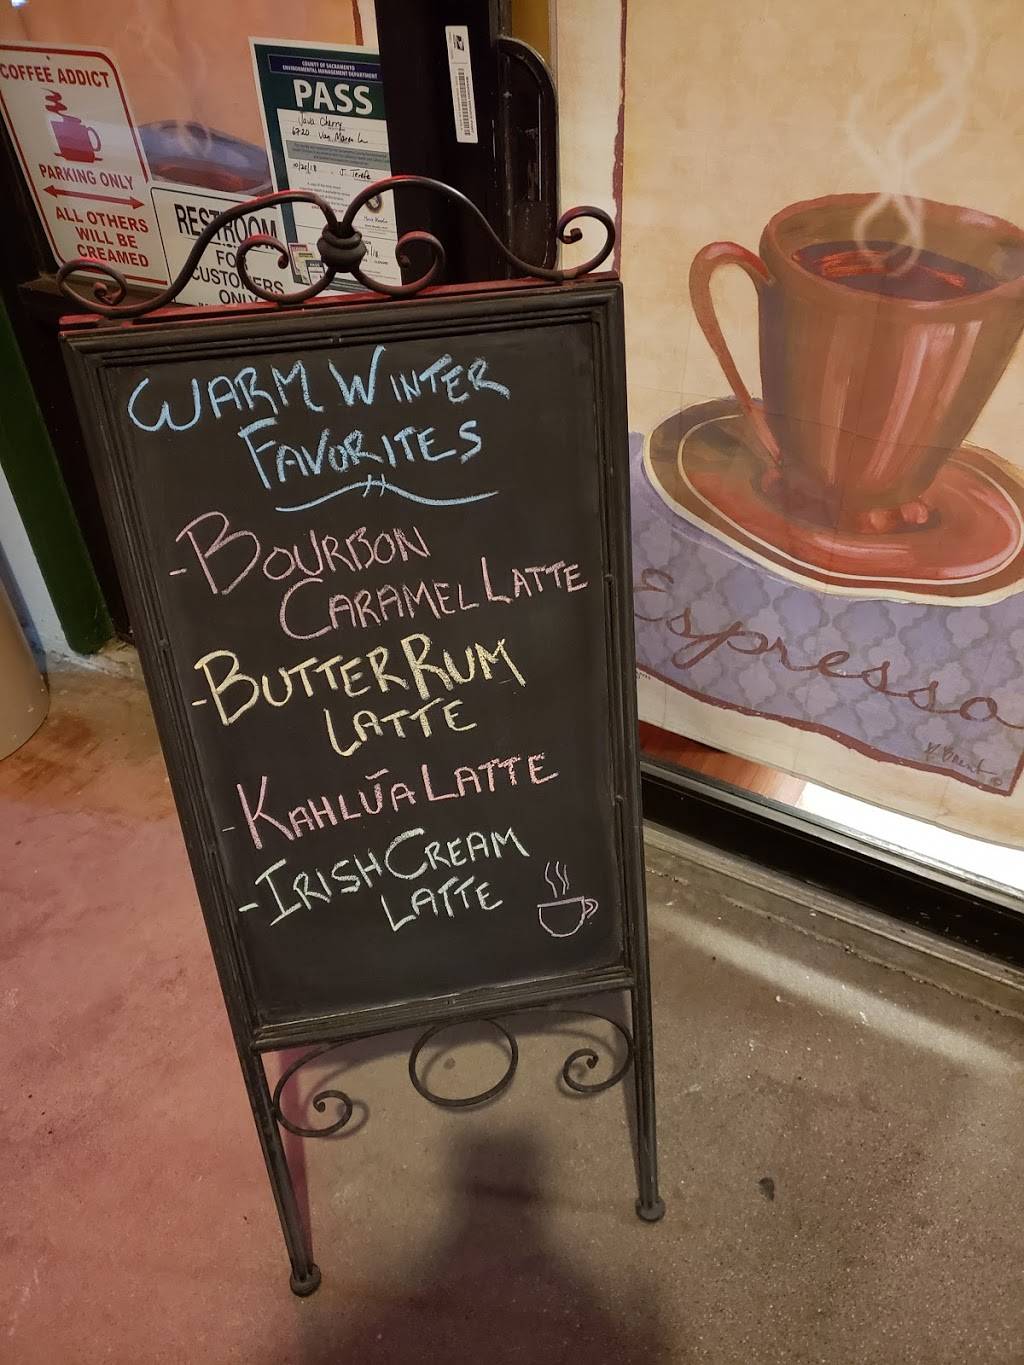 COFFEE ADDICT
PARKING ONLY
ALL OTHERS
WILL BE
CREAMED
RESTROOM
FOR
CUSTOMERS
ONLY
COUNTY OF SACRAMENTO
ENVIRONMENTAL MANAGEMENT DEPARTMENT
PASS
Java Cherry
6720 Van Maren Ln
WARM WINTER
FAVORITES
- BOURBON
CARAMEL LATTE
- BUTTER RUM
LATTE
- KAHLŪA LATTE
- IRISH CREAM
LATTE
Espresso